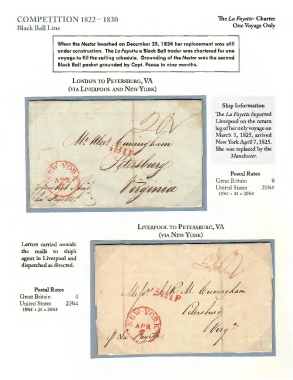 COMPETITION 1822 – 1830
Black Ball Line
The La Fayette- Charter
One Voyage Only
When the Nestor beached on December 25, 1824 her replacement was still
under construction. The La Fayette a Black Ball trader was chartered for one
voyage to fill the sailing schedule. Grounding of the Nestor was the second
Black Ball packet grounded by Capt. Pease in nine months.
LONDON TO PETERSBURG, VA
(VIA LIVERPOOL AND NEW YORK)
Cuningham
Petersburg
Virginia
NEW-YORK
APR
SHIP
Ship Information
The La Fayette departed
Liverpool on the return
leg of her only voyage on
March 1, 1825, arrived
New York April 7, 1825.
She was replaced by the
Manchester.
Postal Rates
Great Britain 0
United States 20¾¢
18¾¢ + 2¢ = 20¾¢
LIVERPOOL TO PETERSBURG, VA
(VIA NEW YORK)
Letters carried outside
the mails to ship's
agent in Liverpool and
dispatched as directed.
Postal Rates
Great Britain 0
United States 20¾¢
18¾¢ + 2¢ = 20¾¢
SHIP
Cuningham
Petersburg
NEW-YORK
APR